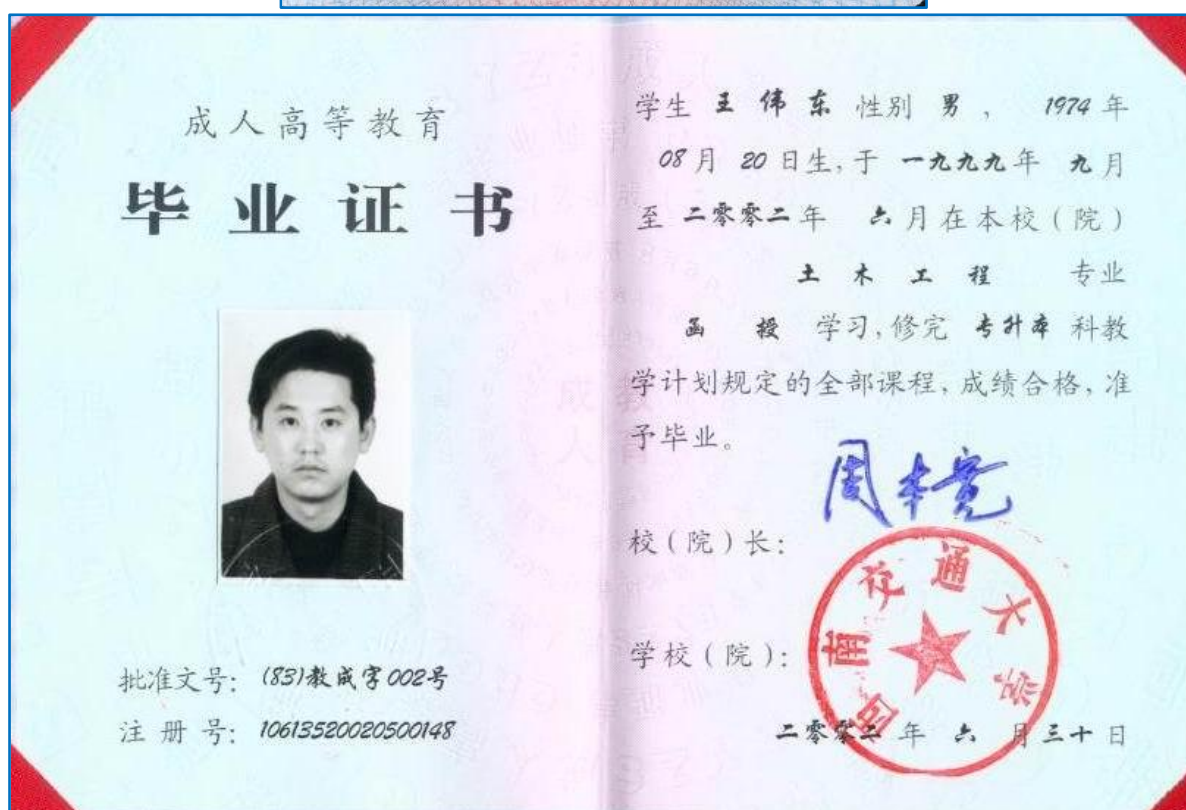 成人高等教育
毕业证书
批准文号：(83)教成字002号
注册号：10613520020500148
学生 王伟东 性别 男， 1974年
08月 20日生，于 一九九九年 九月
至 二零零二年 六月在本校（院）
土木工程 专业
函授 学习，修完 专升本 科教
学计划规定的全部课程，成绩合格，准
予毕业。
校（院）长： 周本宽
学校（院）：
西南交通大学
二零零二年 六月三十日